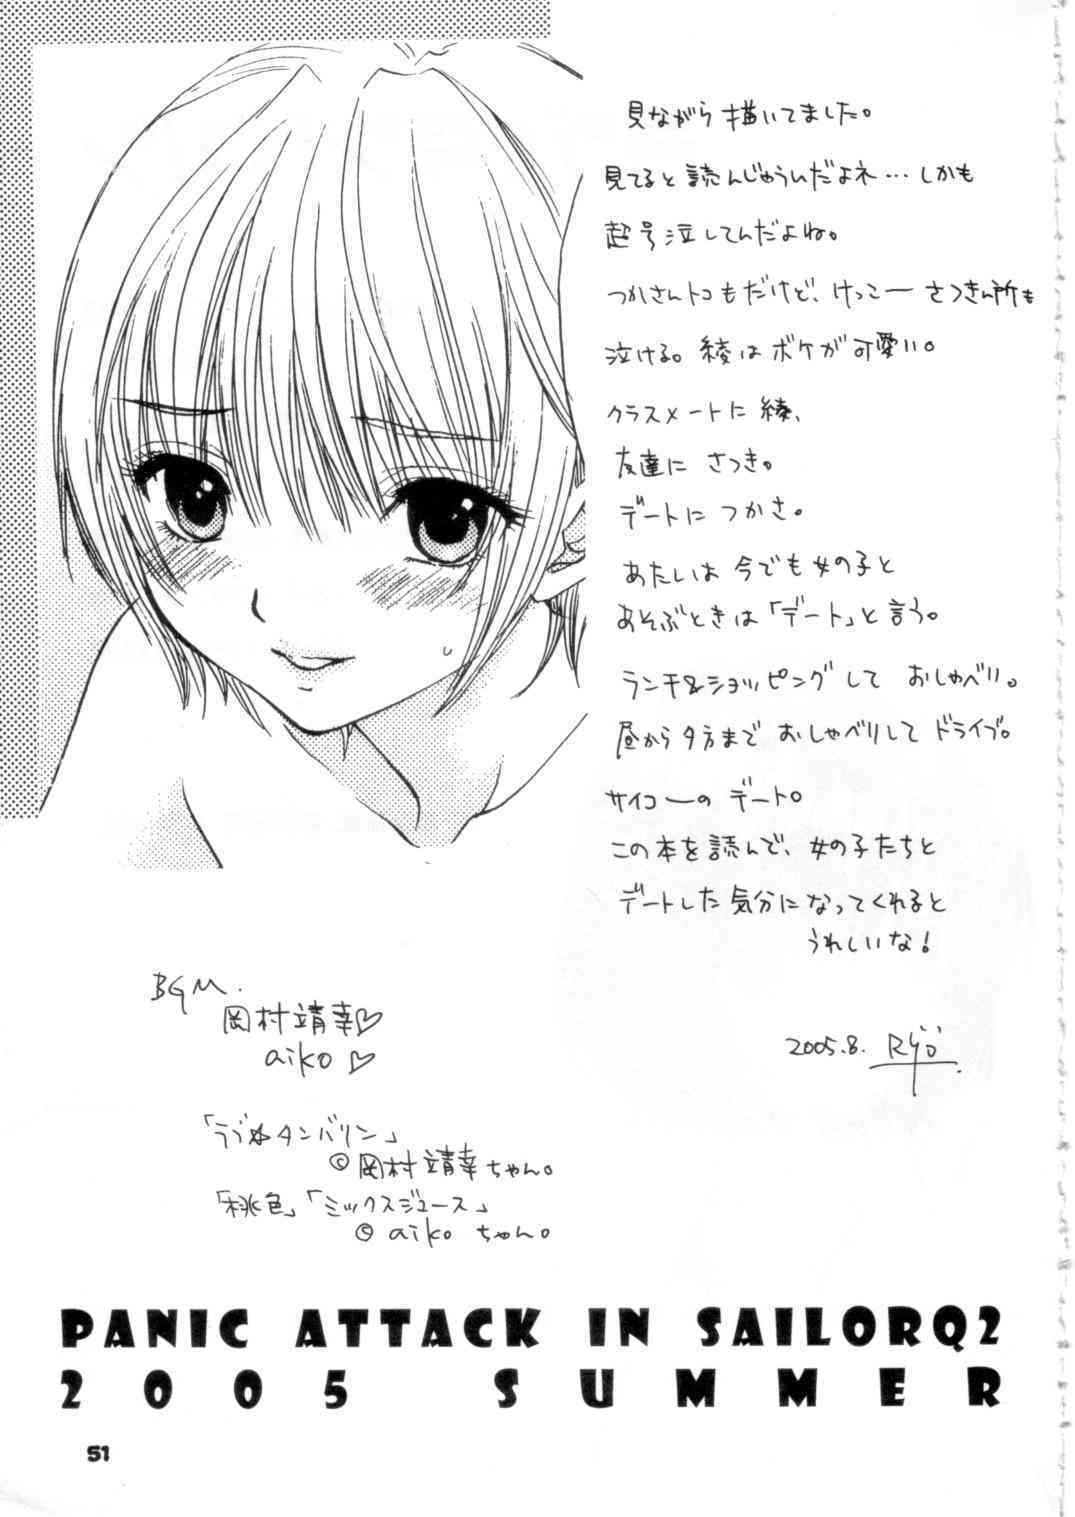 見ながら描いてました。
見てると読んじゃうんだよネ…しかも
超号泣してんだよね。
つかさんトコもだけど、けっこーさつきん所も
泣ける。綾はボケが可愛い。
クラスメートに綾、
友達にさつき。
デートにつかさ。
あたいは今でも女の子と
あそぶときは「デート」と言う。
ランチ&ショッピングしておしゃべり。
昼から夕方までおしゃべりしてドライブ。
サイコーのデート。
この本を読んで、女の子たちと
デートした気分になってくれると
うれしいな!
2005.8. Ryo
BGM.
岡村靖幸♡
aiko♡
「ラブ☆タンバリン」
©岡村靖幸ちゃん。
「桃色」「ミックスジュース」
© aikoちゃん。
PANIC ATTACK IN SAILORQ2
2005 SUMMER
51